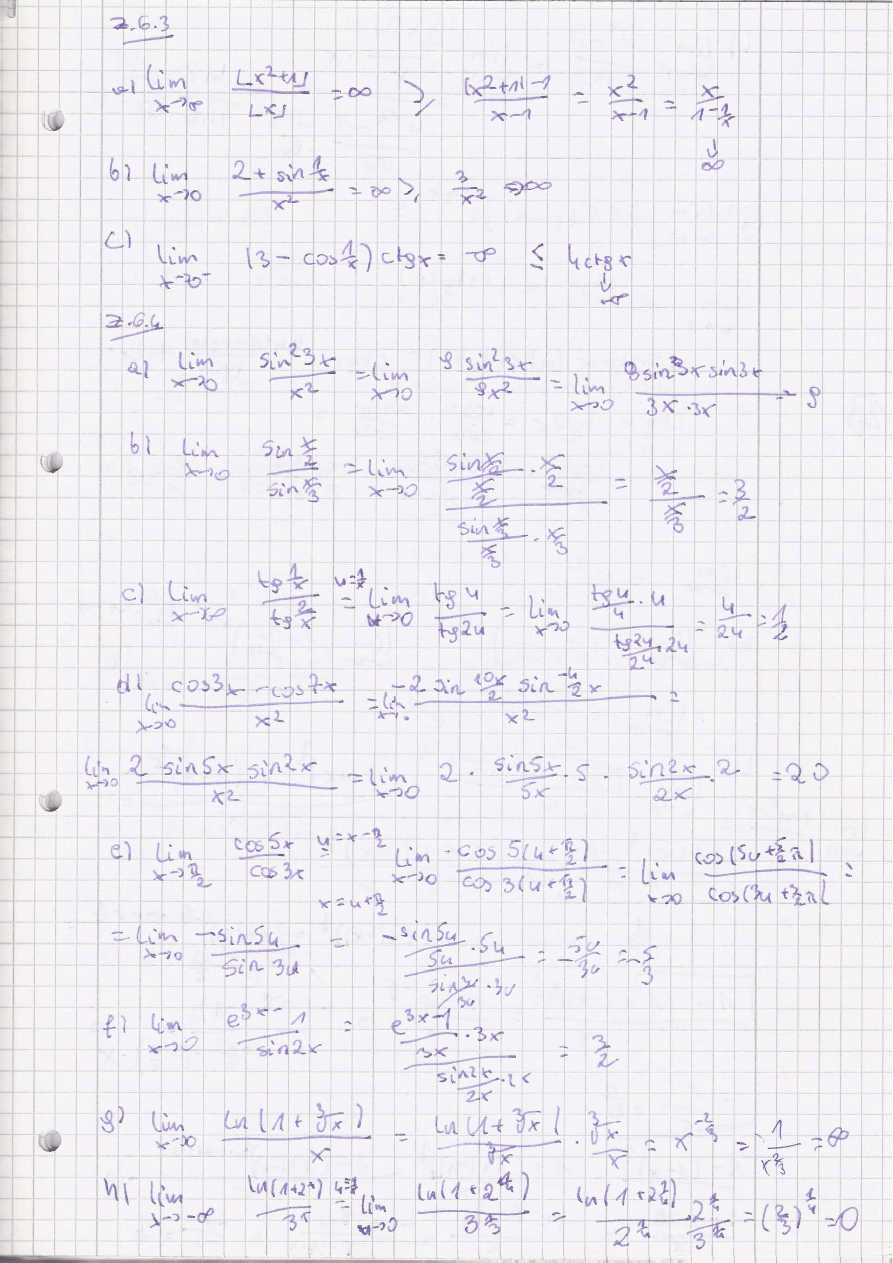 Z.6.3
a) lim x→∞ ⌊x²+1⌋/⌊x⌋ = ∞ ≥ (x²+1)-1/x-1 = x²/x-1 = x/1-1/x ↓ ∞
b) lim x→0 2+sin 1/x / x² = ∞ ≥ 3/x² →∞
c) lim x→0⁻ (3 - cos 1/x) ctgx = -∞ ≤ 4ctgx ↓ -∞
Z.6.4
a) lim x→0 sin²3x/x² = lim x→0 9 sin²3x/9x² = lim x→0 9 sin3x sin3x/3x·3x = 9
b) lim x→0 sin x/2 / sin x/3 = lim x→0 (sin x/2 / x/2 · x/2)/(sin x/3 / x/3 · x/3) = x/2 / x/3 = 3/2
c) lim x→∞ tg 1/x / tg 2/x u=1/x = lim u→0 tgu/tg2u = lim x→0 (tgu/u · u)/(tg2u/2u · 2u) = u/2u = 1/2
d) lim x→0 cos3x - cos7x / x² = lim x→0 -2 sin 10x/2 sin -4/2 x / x² =
lim x→0 2 sin5x sin2x / x² = lim x→0 2 · sin5x/5x · 5 · sin2x/2x · 2 = 20
e) lim x→π/2 cos5x/cos3x u=x-π/2 = x=u+π/2 lim x→0 cos 5(u+π/2)/cos 3(u+π/2) = lim x→0 cos(5u+5/2π)/cos(3u+3/2π) =
= lim x→0 -sin5u/sin3u = (-sin5u/5u · 5u)/(sin3u/3u · 3u) = -5u/3u = -5/3
f) lim x→0 e³ˣ-1/sin2x = (e³ˣ-1/3x · 3x)/(sin2x/2x · 2x) = 3/2
g) lim x→0 ln(1+∛x)/x = ln(1+∛x)/∛x · ∛x/x = x^-2/3 = 1/x^2/3 = ∞
h) lim x→-∞ ln(1+2ˣ)/3ˣ u=1/x = lim u→0 ln(1+2^1/u)/ = ln(1+2^1/u)/2^1/u · 2^1/u/3^1/u = (2/3)^1/u = 0